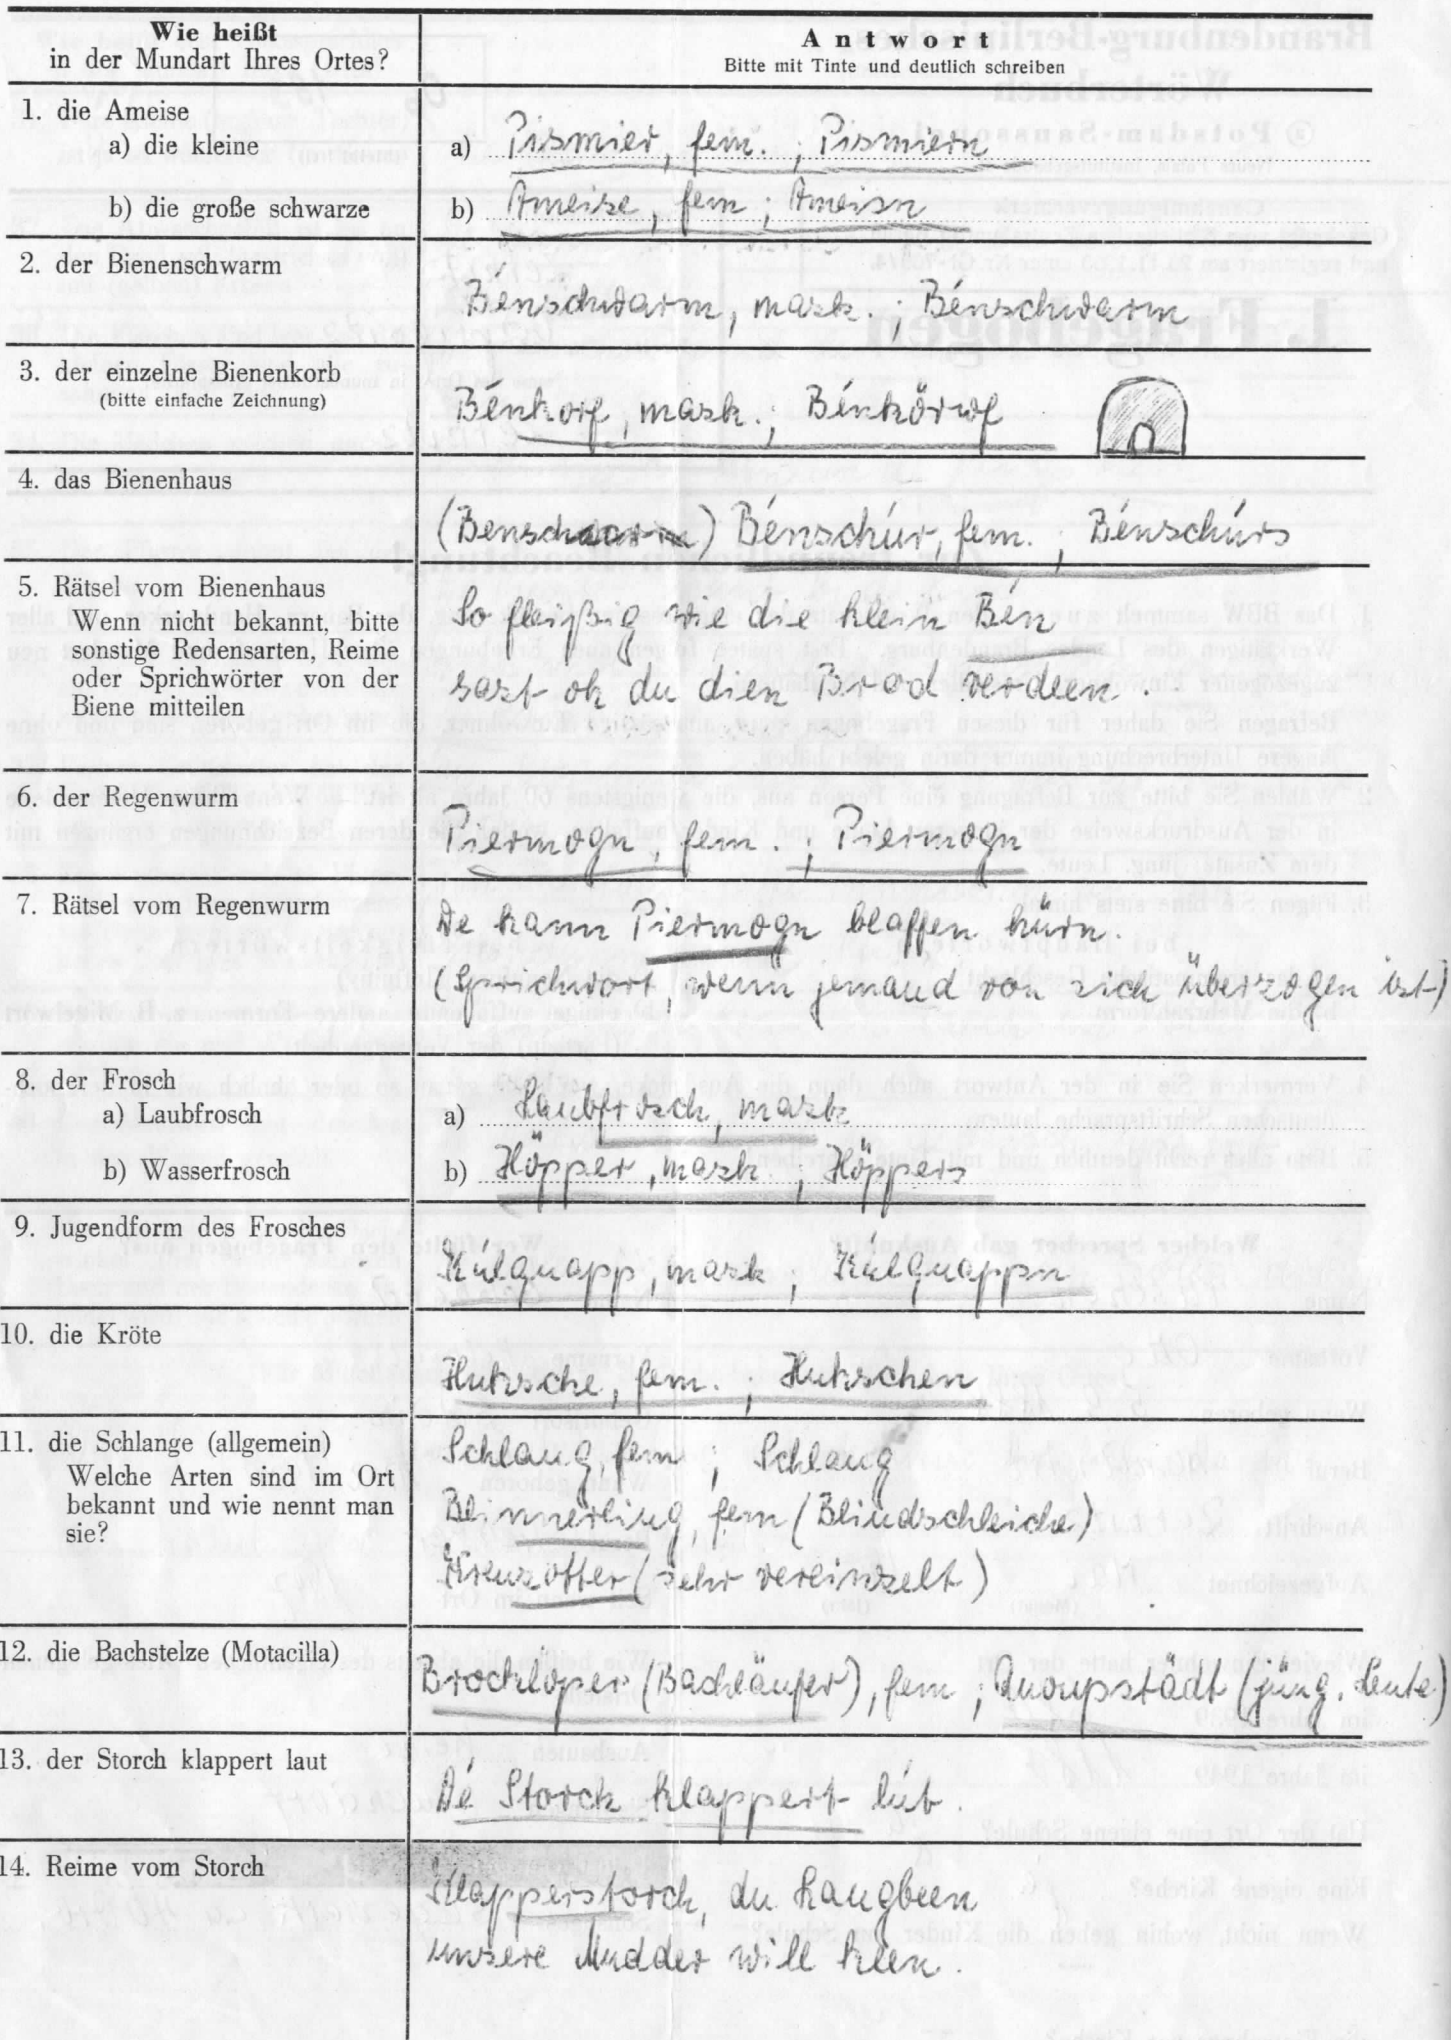 Wie heißt
in der Mundart Ihres Ortes?
Antwort
Bitte mit Tinte und deutlich schreiben
1. die Ameise
a) die kleine
a) Pismier, fem. ; Pismiern
b) die große schwarze
b) Ameise, fem ; Ameisn
2. der Bienenschwarm
Bénschwarm, mask. ; Bénschwarm
3. der einzelne Bienenkorb
(bitte einfache Zeichnung)
Bénkorf, mask. ; Bénkörwf
4. das Bienenhaus
(Benschwarm) Bénschúr, fem. ; Bénschúrs
5. Rätsel vom Bienenhaus
Wenn nicht bekannt, bitte
sonstige Redensarten, Reime
oder Sprichwörter von der
Biene mitteilen
So fleißig wie die klein Bén
sast ok du dien Brod verdeen.
6. der Regenwurm
Piermogn, fem. ; Piermogn
7. Rätsel vom Regenwurm
De kann Piermogn blaffen hürn.
(Sprichwort, wenn jemand von sich überzogen ist)
8. der Frosch
a) Laubfrosch
a) Laubfrosch, mask
b) Wasserfrosch
b) Höpper, mask. ; Höppers
9. Jugendform des Frosches
Kúlquapp, mask ; Kúlquappn
10. die Kröte
Hutzsche, fem. ; Hutzschen
11. die Schlange (allgemein)
Welche Arten sind im Ort
bekannt und wie nennt man
sie?
Schlang, fem ; Schlang
Blinnerling, fem (Blindschleiche)
Kreuzotter (sehr vereinzelt)
12. die Bachstelze (Motacilla)
Brocklöper (Bachläufer), fem ; Quoupstädt (jüng. Leute)
13. der Storch klappert laut
Dé Storck klappert lút.
14. Reime vom Storch
Klapperstorch, du Langbeen
unsere Mudder will kleen.